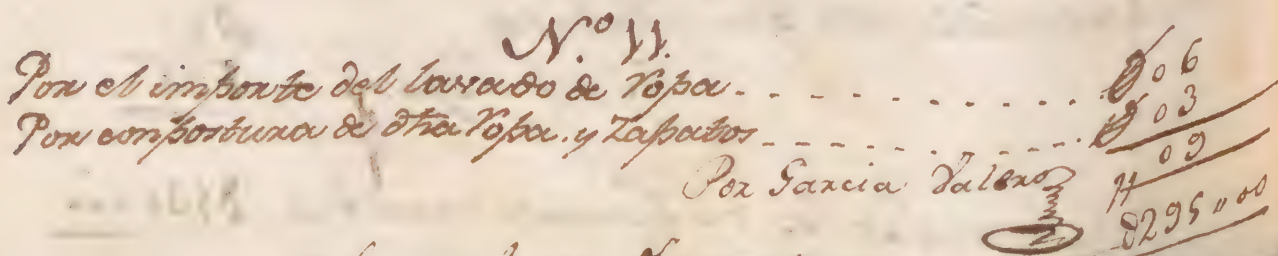 N.º 11.
Por el importe del lavado de Ropa - - - - - - - - - - - 06
Por conpostura de dha Ropa. y Zapatos - - - - - - - - - - - 03
09
Por Garcia Valero
8295 " 00